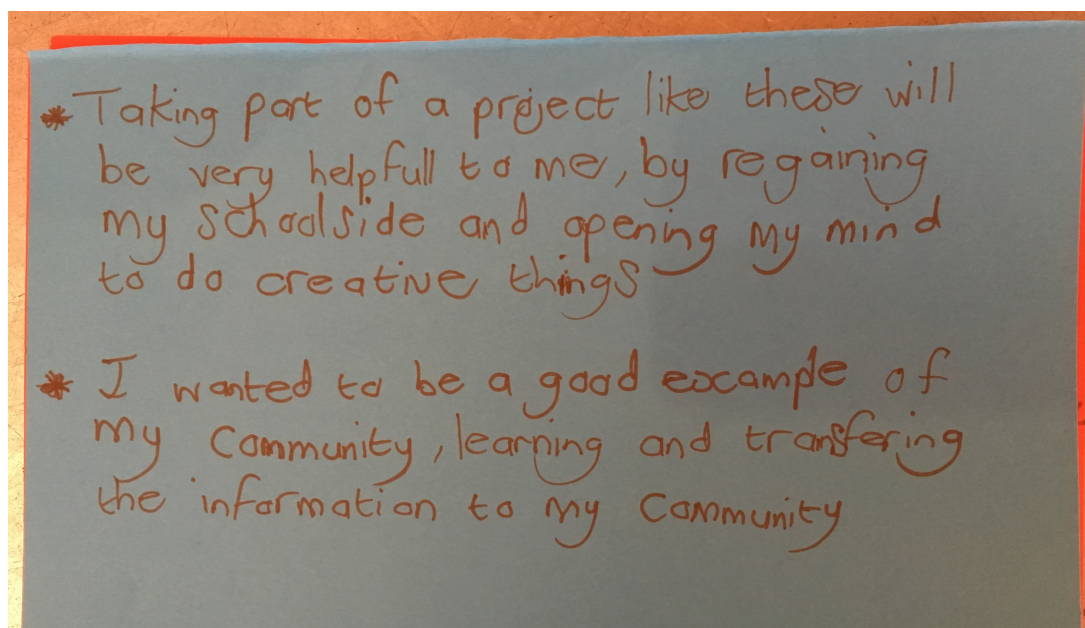 * Taking part of a project like these will
be very helpfull to me, by regaining
my schoolside and opening my mind
to do creative things
* I wanted to be a good example of
my community, learning and transfering
the information to my community